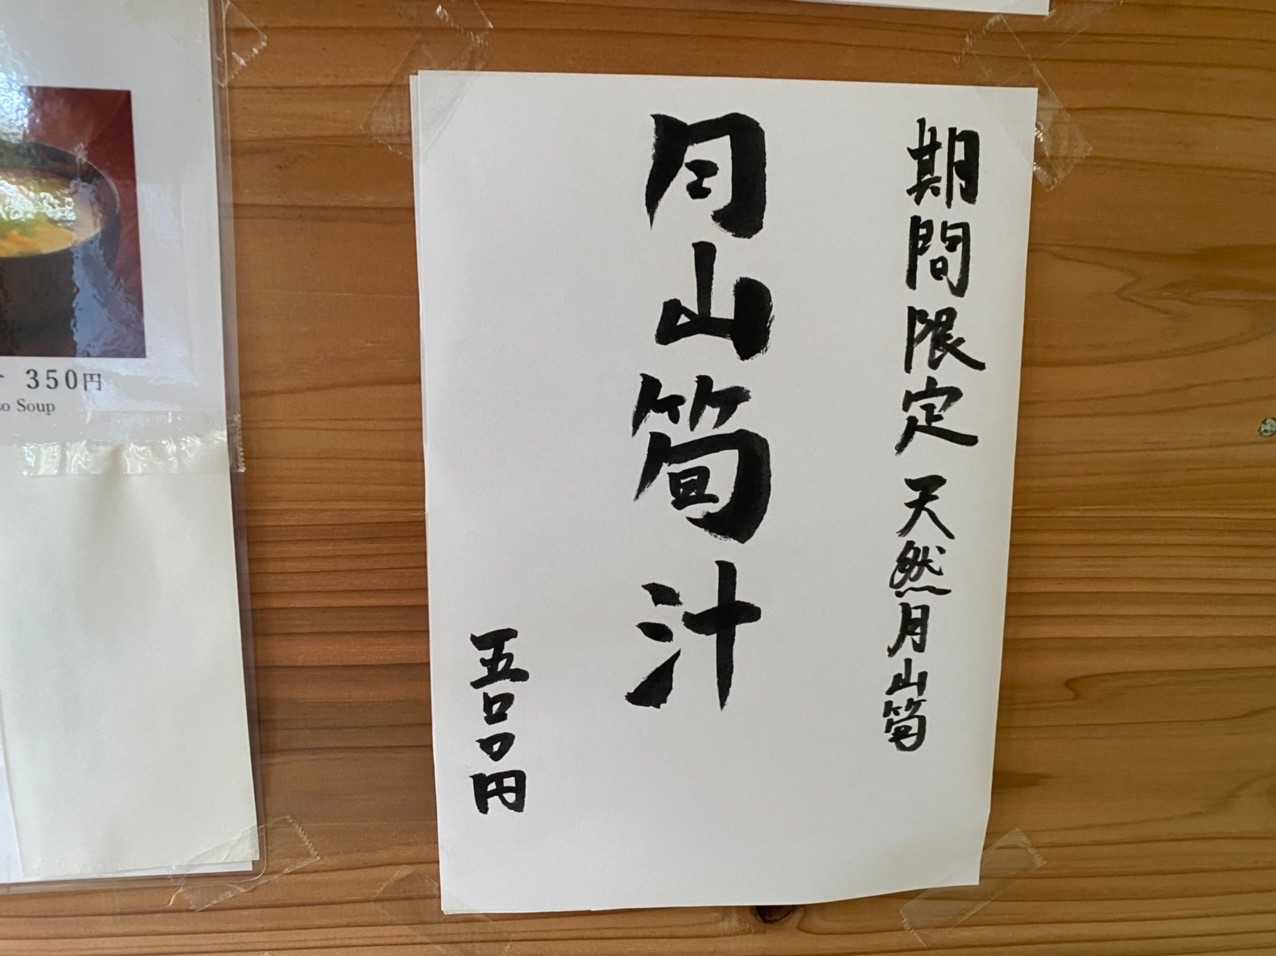 期間限定 天然月山筍
月山筍汁
五〇〇円
350円
Soup